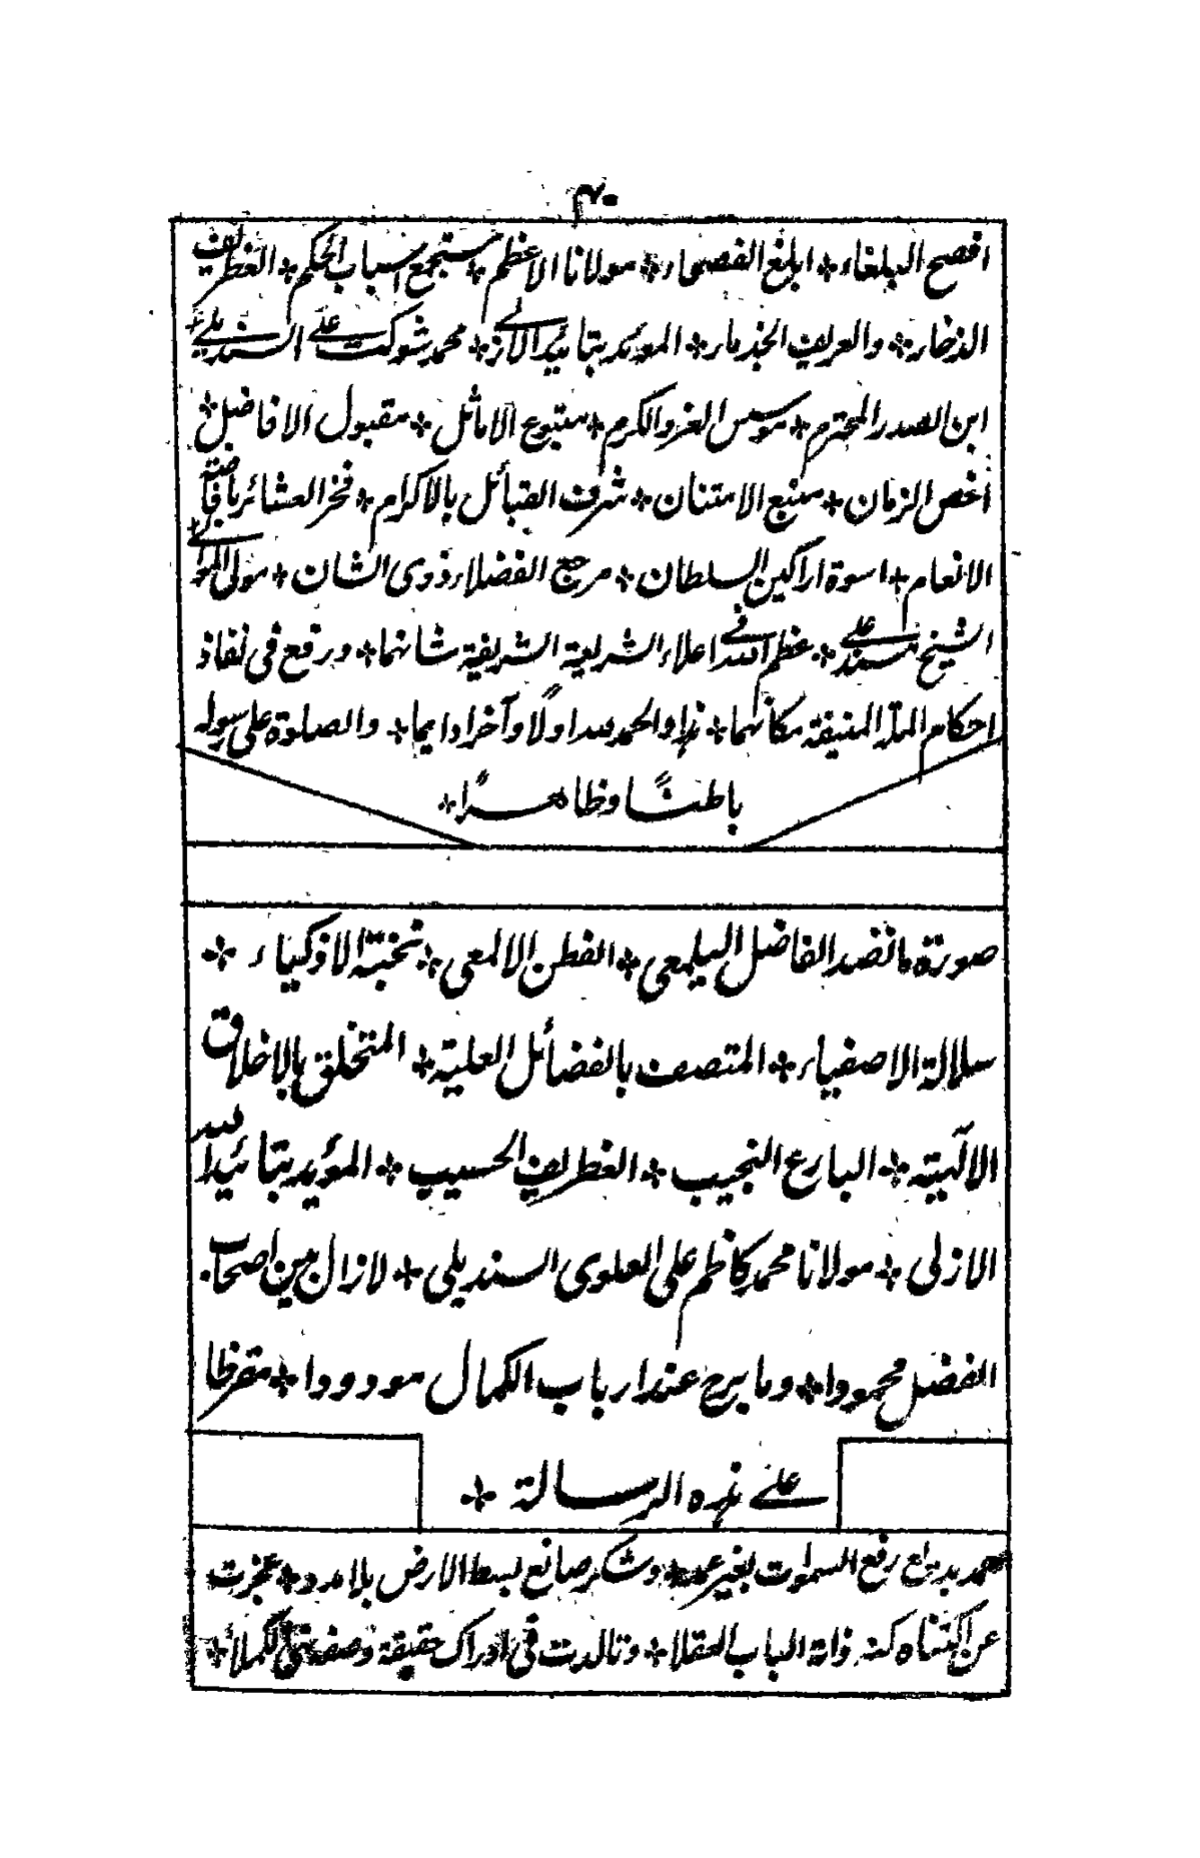 ۴۰
افصح البلغاء ❊ ابلغ الفصحاء ❊ مولانا الاعظم ❊ مستجمع اسباب الحكم ❊ الغطريف
الذخار ❊ والعريف الجذمار ❊ المؤيد بتائيد الازلى ❊ محمد شوكت على السنديلى ❊
ابن الصدر المحترم ❊ موسس العز والكرم ❊ متبوع الاماثل ❊ مقبول الافاضل ❊
اخص الزمان ❊ منبع الامتنان ❊ شرف القبائل بالاكرام ❊ فخر العشائر بافاضة
الانعام ❊ اسوة اراكين السلطان ❊ مرجع الفضلاء ذوى الشان ❊ مولى الموالى ❊
الشيخ مسند على ❊ عظم الله فى اعلاء الشريعة الشريفة شانهما ❊ ورفع فى نفاذ
احكام الملة المنيفة مكانهما ❊ هذا والحمد لله اولًا وآخرا دايما ❊ والصلوة على رسوله
باطنًا وظاهرًا ❊
صورة ما نضد الفاضل اليلمعى ❊ الفطن الالمعى ❊ نخبة الاذكياء ❊
سلالة الاصفياء ❊ المتصف بالفضائل العلية ❊ المتخلق بالاخلاق
الالٓهية ❊ البارع النجيب ❊ الغطريف الحسيب ❊ المؤيد بتائيد الله
الازلى ❊ مولانا محمد كاظم على العلوى السنديلى ❊ لازال بين اصحاب
الفضل محمودا ❊ وما برح عند ارباب الكمال مودودا ❊ مقرظا
على هذه الرسالة ❊
نحمد بديع رفع السموات بغير عمد ❊ وشكر صانع بسط الارض بلا مدد ❊ عجزت
عن اكتناه كنه ذاته الباب العقلا ❊ وتالدت فى ادراك حقيقة وصفه الكملا ❊